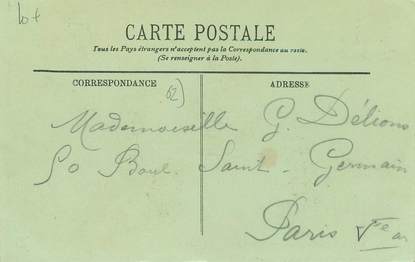 lot
CARTE POSTALE
Tous les Pays étrangers n'acceptent pas la Correspondance au recto.
(Se renseigner à la Poste).
CORRESPONDANCE
ADRESSE
62)
Mademoiselle G. Délions
50 Boul. Saint-Germain
Paris Ve ar